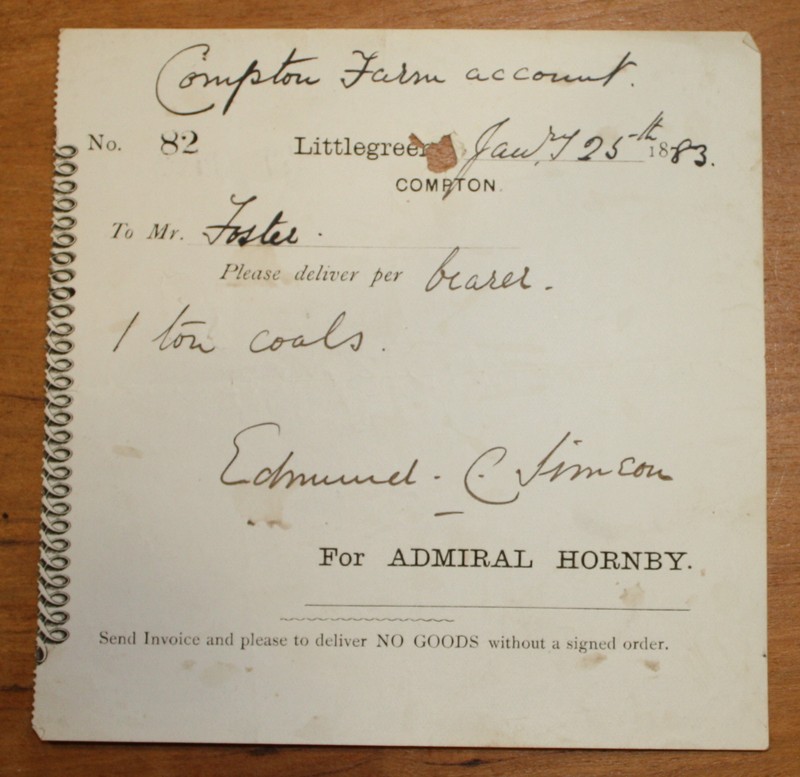 Compton Farm account.
No. 82 Littlegreen Janry 25th 1883.
COMPTON.
To Mr. Foster.
Please deliver per bearer.
1 ton coals.
Edmund. C. Simeon
For ADMIRAL HORNBY.
Send Invoice and please to deliver NO GOODS without a signed order.